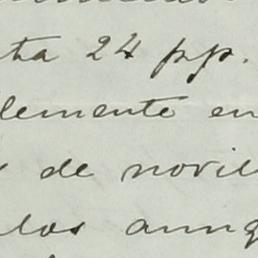 ta 24 pp.
lemente en
de novil
los aunq